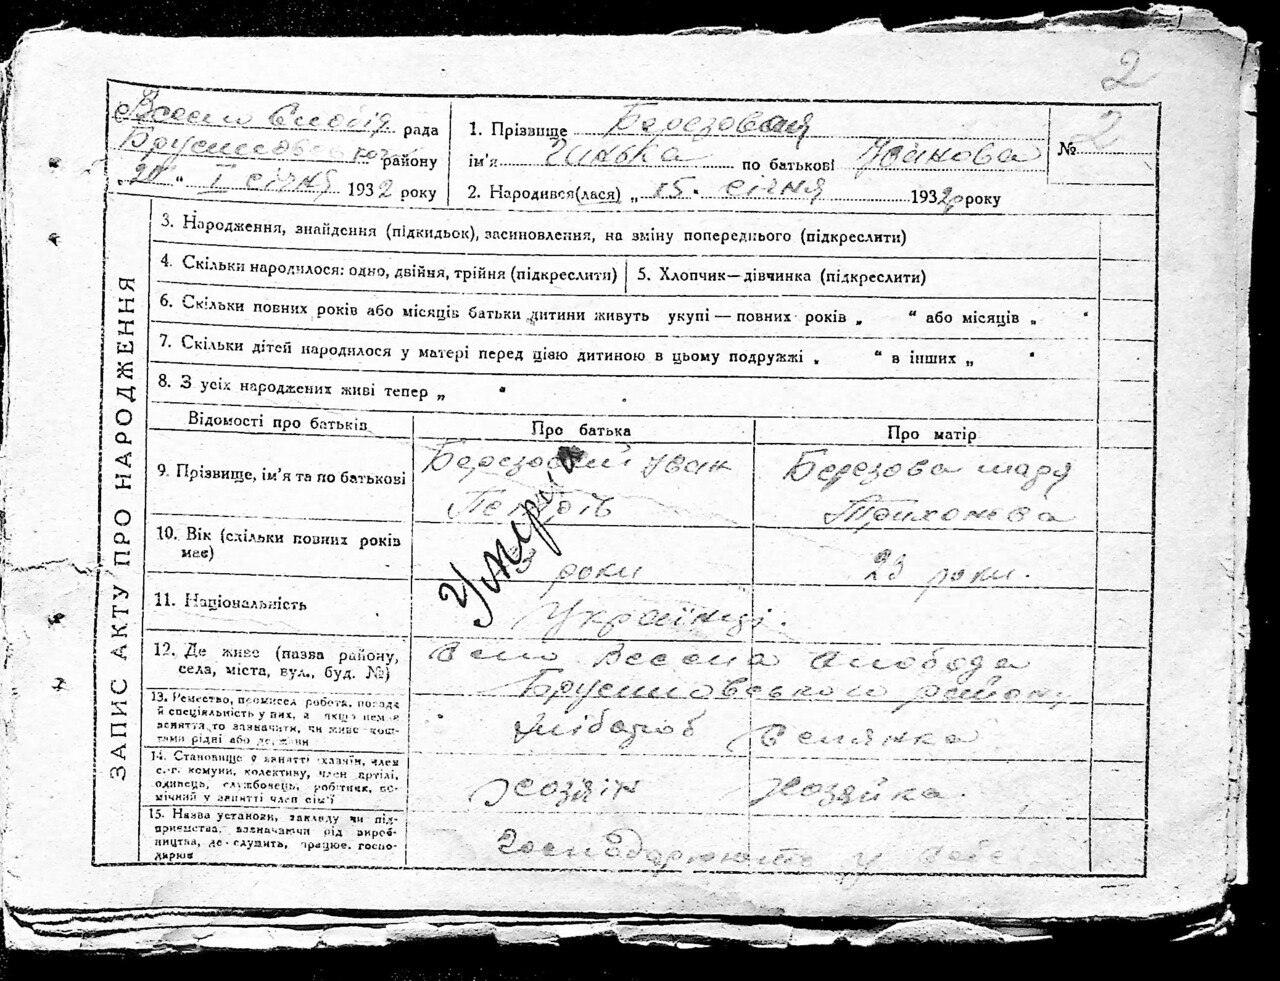 2
Весело Слобід. рада
Брусилівського району
„20“ І січня 1932 року
1. Прізвище Березовская
ім'я Ганька по батькові Іванова
2. Народився(лася) „15. січня 1932 року
№ 2
ЗАПИС АКТУ ПРО НАРОДЖЕННЯ
3. Народження, знайдення (підкидьок), засиновлення, на зміну попереднього (підкреслити)
4. Скільки народилося: одно, двійня, трійня (підкреслити)
5. Хлопчик—дівчинка (підкреслити)
6. Скільки повних років або місяців батьки дитини живуть укупі—повних років „ “ або місяців „ “
7. Скільки дітей народилося у матері перед цією дитиною в цьому подружжі „ “ в інших „ “
8. З усіх народжених живі тепер „ “
Відомості про батьків
Про батька
Про матір
9. Прізвище, ім'я та по батькові
Березовский Іван
Березова Марія
Тихонова
Умерла
10. Вік (скільки повних років має)
роки
23 роки.
11. Національність
Українці.
12. Де живе (назва району,
села, міста, вул., буд. №)
Село Весела Слобода
Брусиловського району
13. Ремество, промисел робота, посада
й спеціальність у них, а якщо немає
заняття то зазначати, чи живе кош-
тами рідні або держави
хлібороб
селянка
14. Становище в занятті (хазяїн, член
с.-г. комуни, колективу, член артілі,
одинець, службовець, робітник, по-
мічний у занятті член сім'ї
Хозяін
Хозяйка.
15. Назва установи, закладу чи під-
приємства, зазначаючи рід вироб-
ництва, де служить, працює, госпо-
дарює
Господарюють у себе